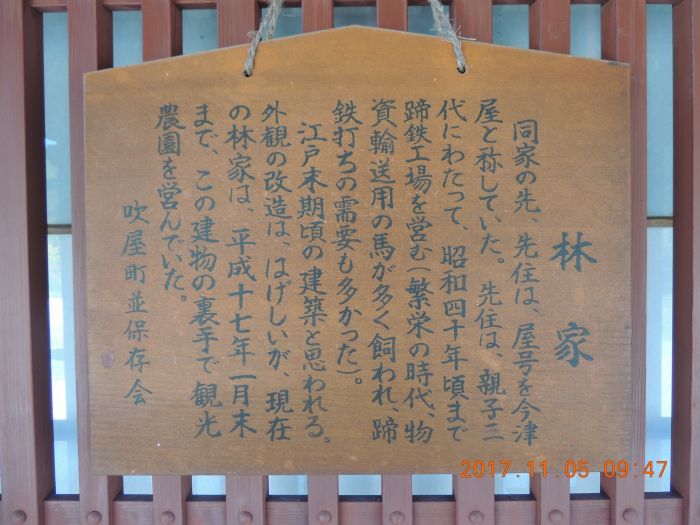 林家
同家の先、先住は、屋号を今津
屋と称していた。先住は、親子二
代にわたって、昭和四十年頃まで
蹄鉄工場を営む(繁栄の時代、物
資輸送用の馬が多く飼われ、蹄
鉄打ちの需要も多かった)。
江戸末期頃の建築と思われる。
外観の改造は、はげしいが、現在
の林家は、平成十七年一月末
まで、この建物の裏手で観光
農園を営んでいた。
吹屋町並保存会
2017.11.05 09:47